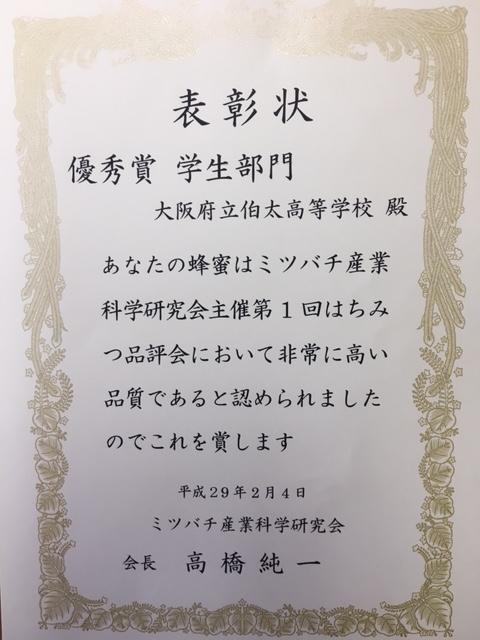 表彰状
優秀賞 学生部門
大阪府立伯太高等学校 殿
あなたの蜂蜜はミツバチ産業
科学研究会主催第1回はちみ
つ品評会において非常に高い
品質であると認められました
のでこれを賞します
平成29年2月4日
ミツバチ産業科学研究会
会長 高橋純一